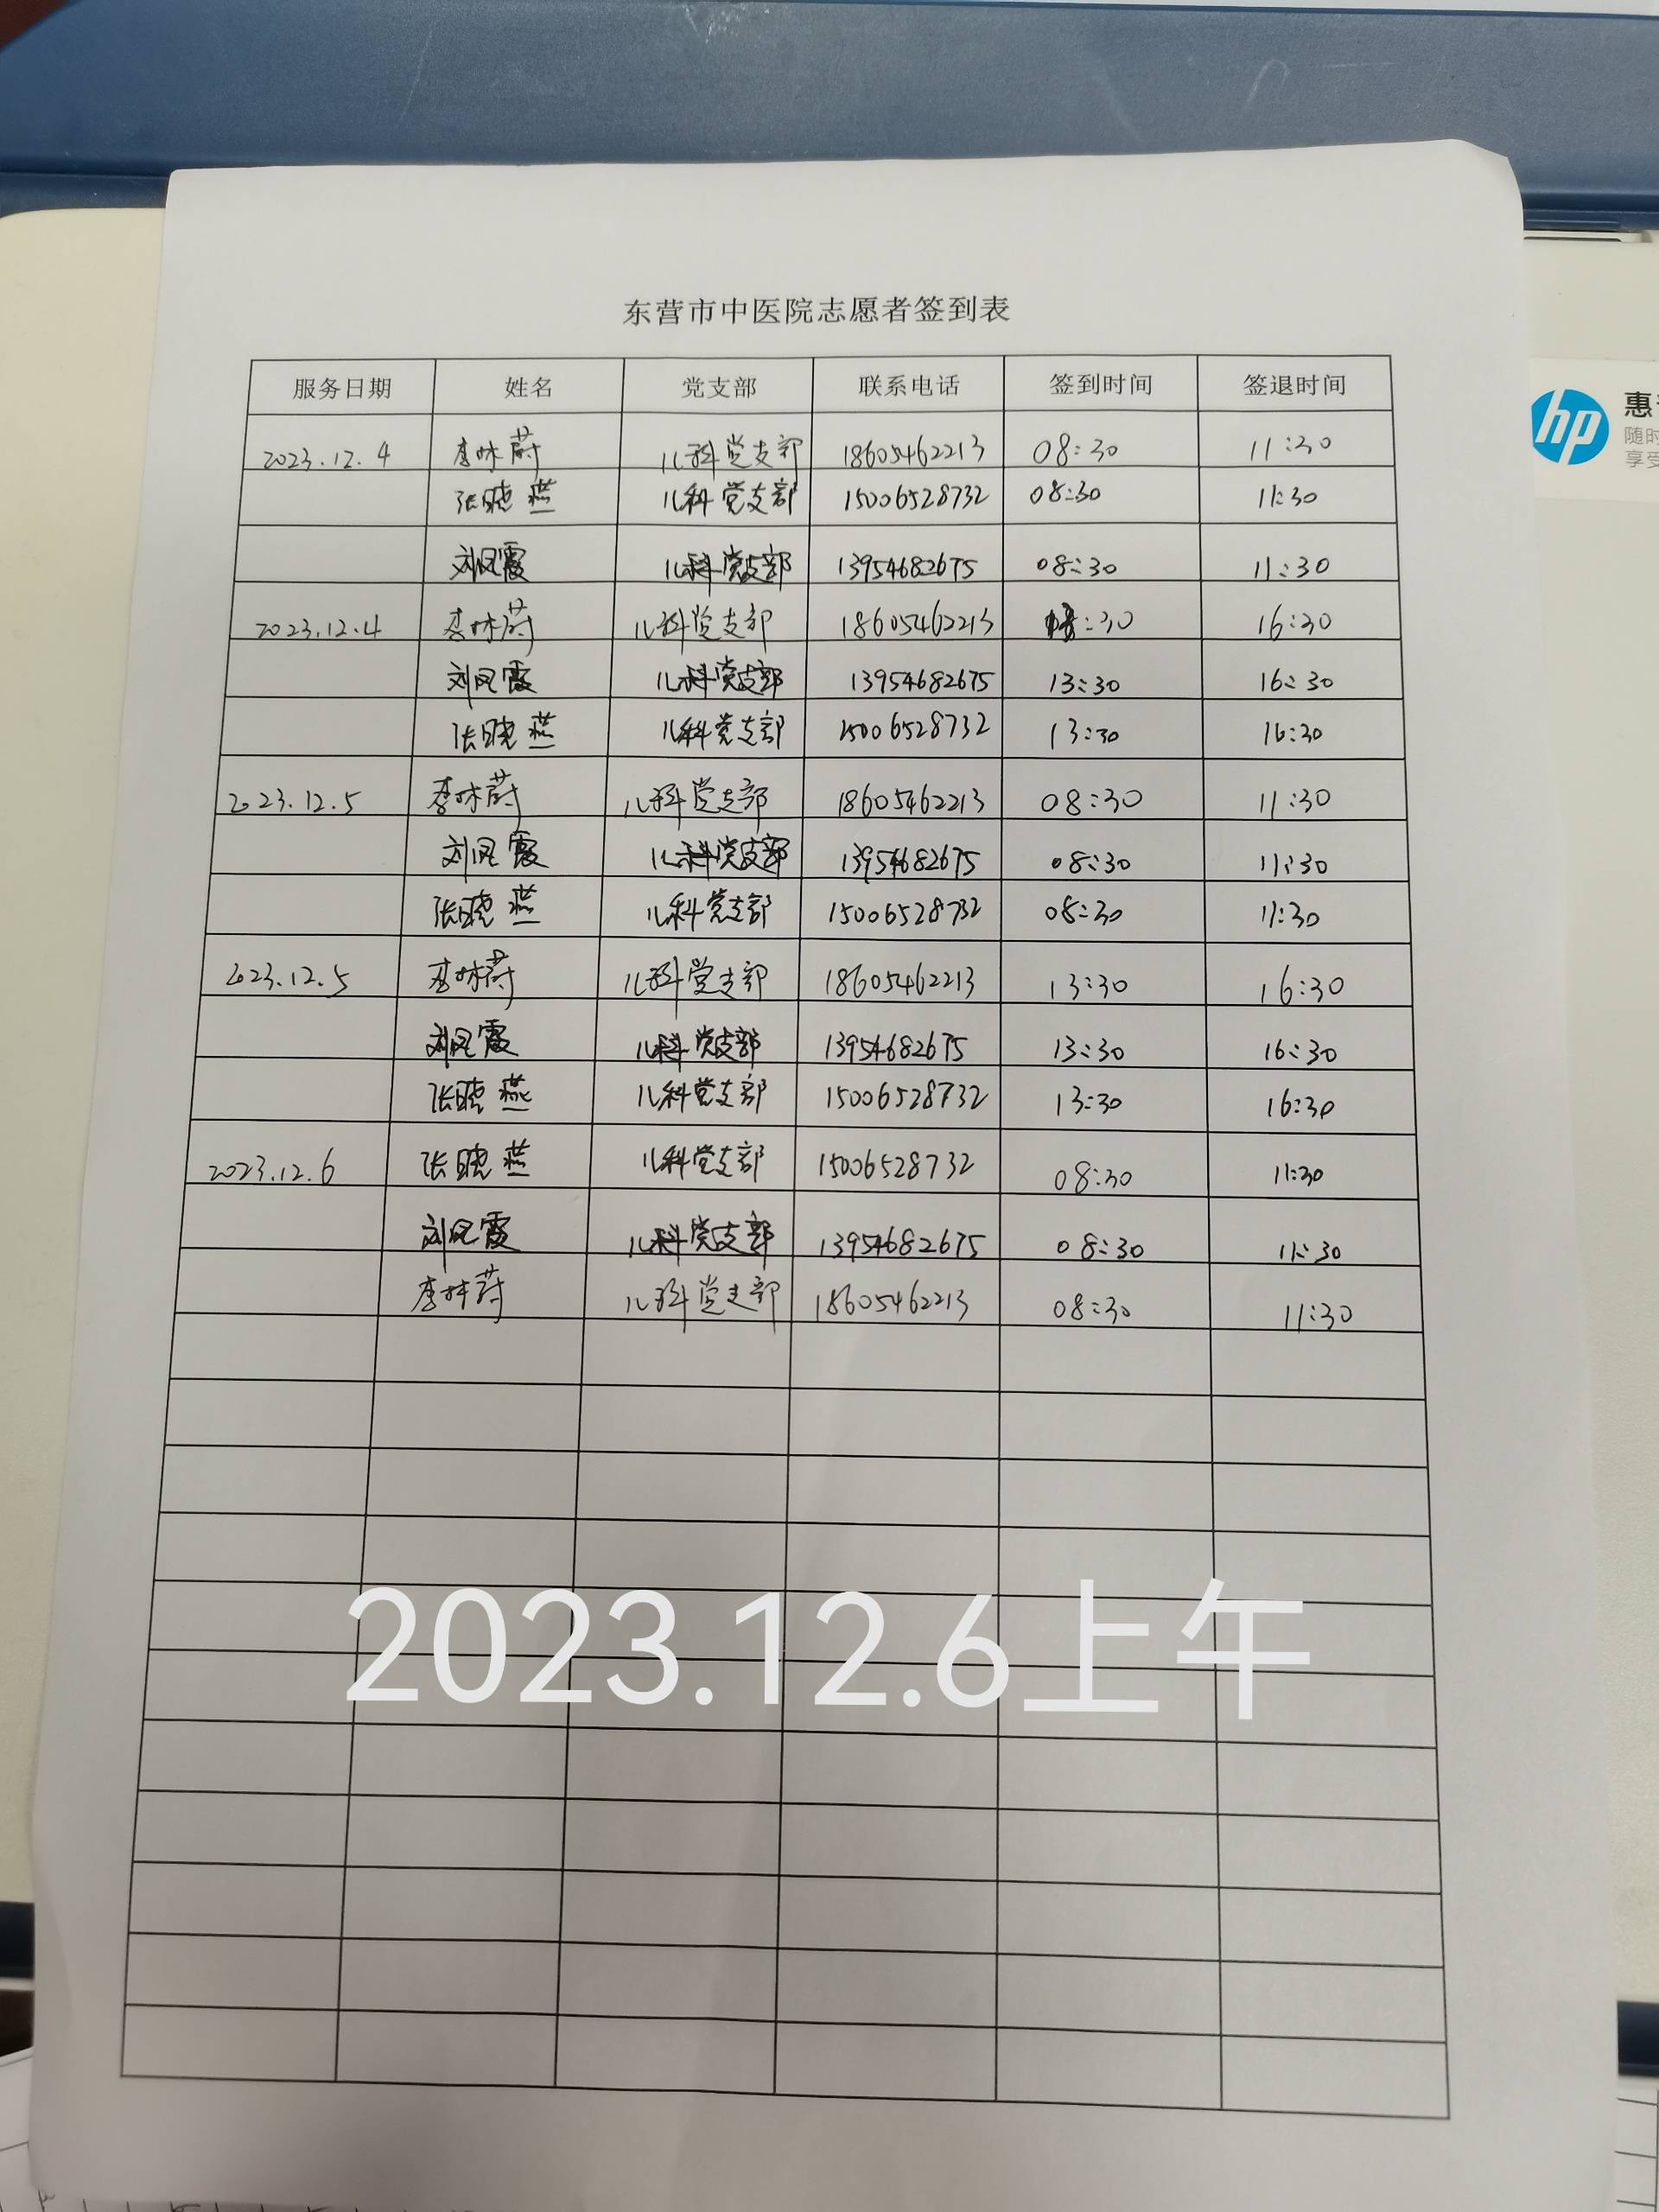 东营市中医院志愿者签到表
服务日期 姓名 党支部 联系电话 签到时间 签退时间
2023.12.4 李林蔚 儿科党支部 18605462213 08:30 11:30
张晓燕 儿科党支部 15006528732 08:30 11:30
刘凤霞 儿科党支部 13954682675 08:30 11:30
2023.12.4 李林蔚 儿科党支部 18605462213 13:30 16:30
刘凤霞 儿科党支部 13954682675 13:30 16:30
张晓燕 儿科党支部 15006528732 13:30 16:30
2023.12.5 李林蔚 儿科党支部 18605462213 08:30 11:30
刘凤霞 儿科党支部 13954682675 08:30 11:30
张晓燕 儿科党支部 15006528732 08:30 11:30
2023.12.5 李林蔚 儿科党支部 18605462213 13:30 16:30
刘凤霞 儿科党支部 13954682675 13:30 16:30
张晓燕 儿科党支部 15006528732 13:30 16:30
2023.12.6 张晓燕 儿科党支部 15006528732 08:30 11:30
刘凤霞 儿科党支部 13954682675 08:30 11:30
李林蔚 儿科党支部 18605462213 08:30 11:30
2023.12.6上午
hp
惠
随时
享受